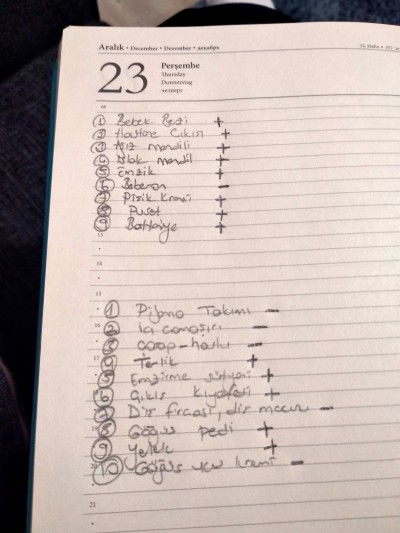 Aralık • December • Dezember • декабрь
23
Perşembe
Thursday
Donnerstag
четверг
① Bebek Bezi +
② Hastane Çıkışı +
③ Ağız mendili +
④ Islak mendil +
⑤ Emzik +
⑥ Biberon –
⑦ Pişik Kremi +
⑧ Puset +
⑨ Battaniye +
13
14
15
① Pijama Takımı –
16 ② İç çamaşırı –
③ Çorap-havlu –
④ Terlik +
⑤ Emzirme sütyeni +
⑥ Çıkış Kıyafeti +
⑦ Diş fırçası, diş macun –
⑧ Göğüs pedi +
⑨ Yelek +
⑩ Göğüs ucu kremi –
21